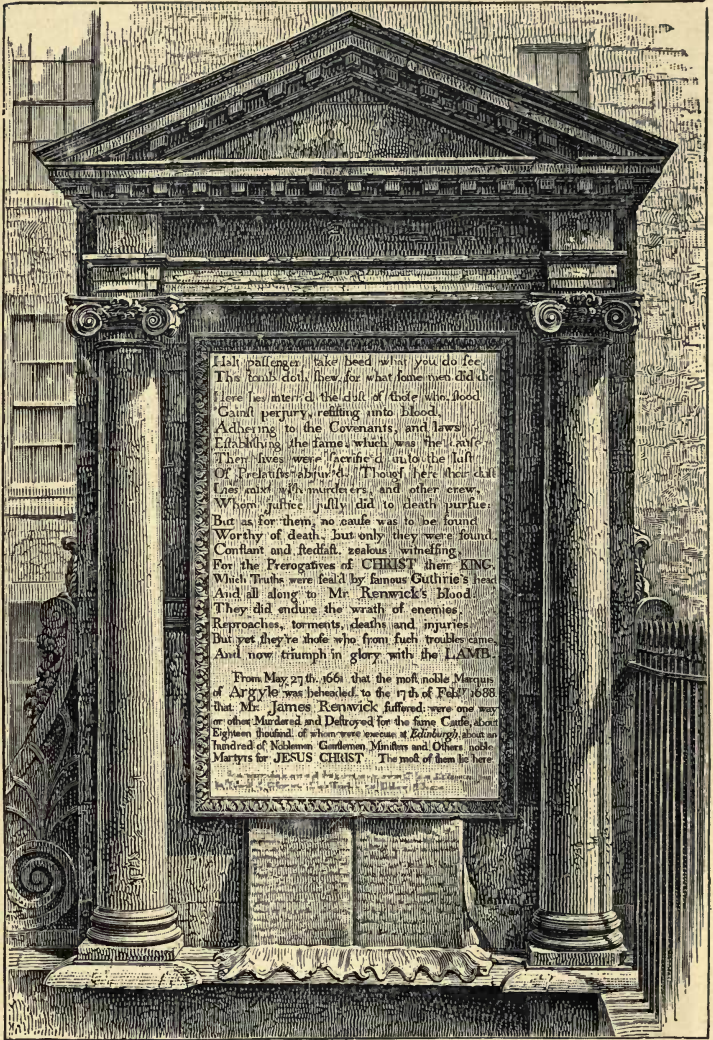 Halt passenger, take heed what you do see,
This tomb doth shew, for what some men did die
Here lies interr'd the dust of those who stood
'Gainst perjury, resisting unto blood,
Adhering to the Covenants, and laws
Establishing the same, which was the cause
Their lives were sacrific'd unto the lust
Of Prelatists abjur'd. Though here their dust
Lies mixt with murderers, and other crew,
Whom justice justly did to death pursue:
But as for them, no cause was to be found
Worthy of death, but only they were found,
Constant and stedfast, zealous witnessing,
For the Prerogatives of CHRIST their KING.
Which Truths were seal'd by famous Guthrie's head
And all along to Mr. Renwick's blood
They did endure the wrath of enemies,
Reproaches, torments, deaths and injuries
But yet they're those who from such troubles came,
And now triumph in glory with the LAMB.
From May 27th. 1661 that the most noble Marquis
of Argyle was beheaded, to the 17th of Febry 1688
that Mr. James Renwick suffered: were one way
or other Murdered and Destroyed for the same Cause, about
Eighteen thousand, of whom were execute at Edinburgh, about an
hundred of Noblemen Gentlemen, Ministers and Others, noble
Martyrs for JESUS CHRIST. The most of them lie here